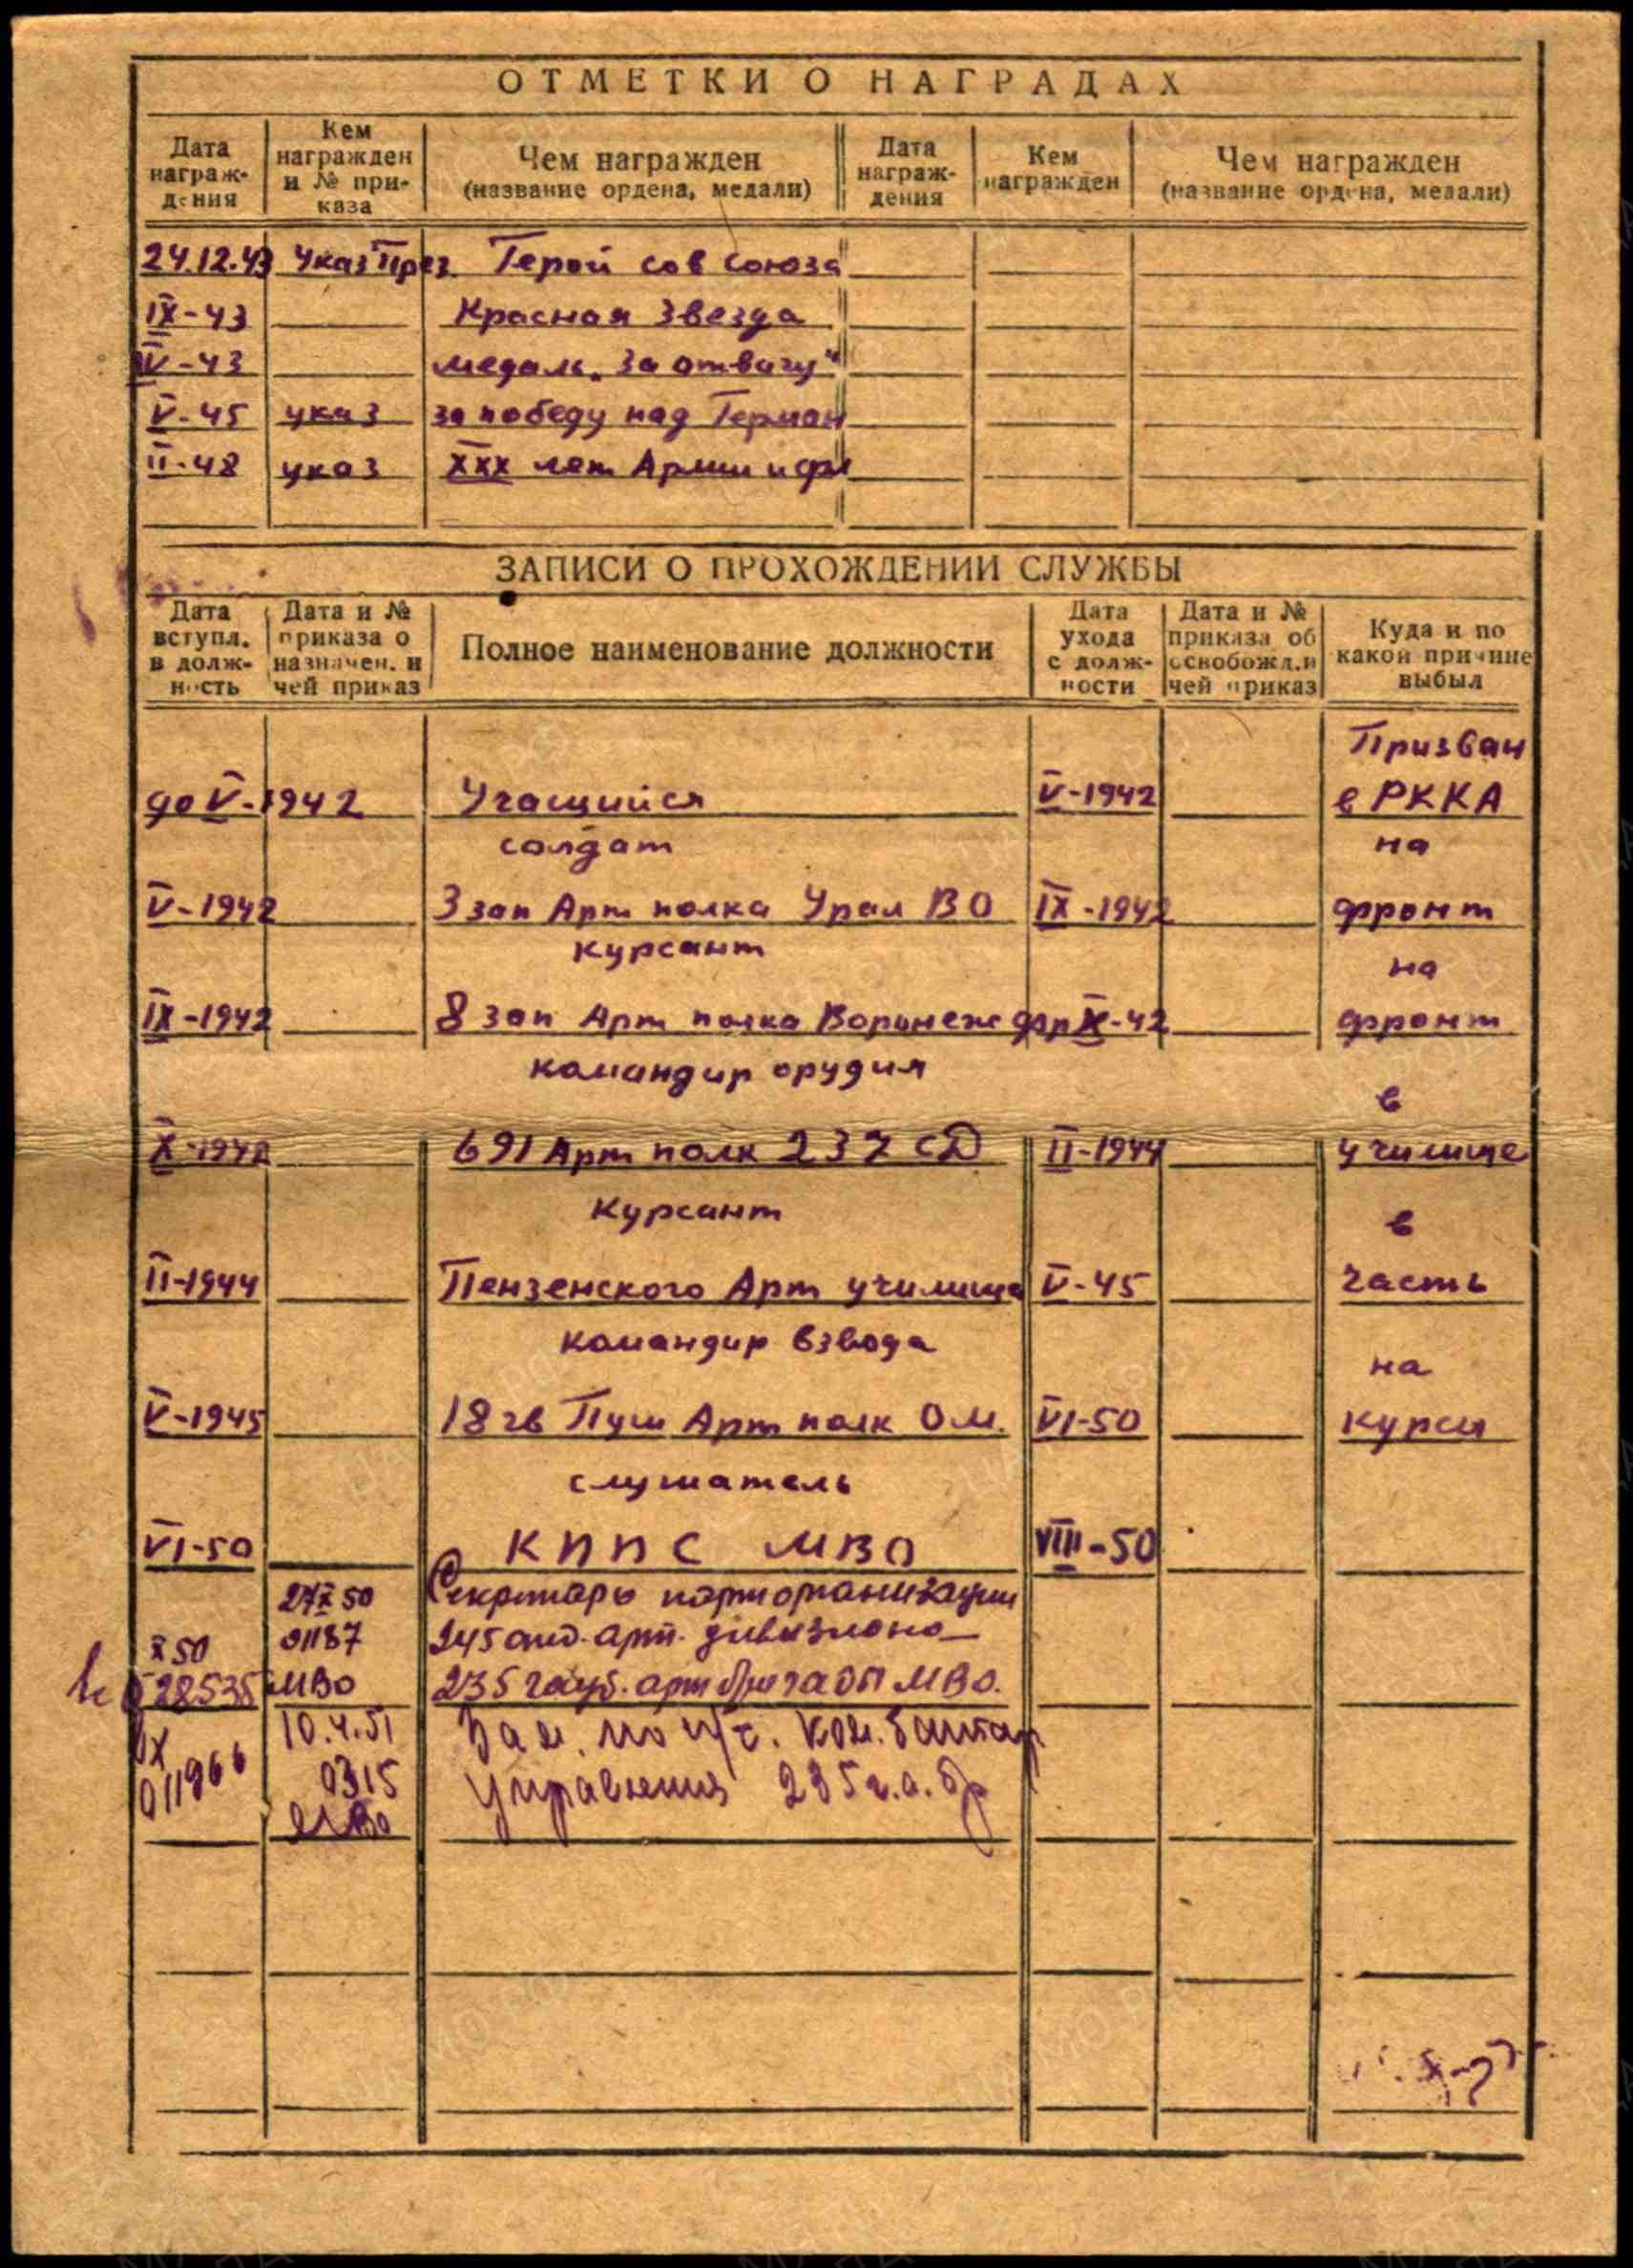 ОТМЕТКИ О НАГРАДАХ
Дата награж- дения
Кем награжден и № при- каза
Чем награжден (название ордена, медали)
Дата награж- дения
Кем награжден
Чем награжден (название ордена, медали)
24.12.43 Указ През. Герой сов союза
IX-43 Красная Звезда
V-43 медаль „За отвагу"
V-45 указ за победу над Герман
II-48 указ XXX лет Армии и фл
ЗАПИСИ О ПРОХОЖДЕНИИ СЛУЖБЫ
Дата вступл. в долж- ность
Дата и № приказа о назначен. и чей приказ
Полное наименование должности
Дата ухода с долж- ности
Дата и № приказа об освобожд. и чей приказ
Куда и по какой причине выбыл
Призван
до V-1942 Учащийся V-1942 в РККА
солдат на
V-1942 3 зап Арт полка Урал ВО IX-1942 фронт
курсант на
IX-1942 8 зап Арт полка Воронеж фр X-42 фронт
командир орудия в
X-1942 691 Арт полк 237 СД II-1944 училище
Курсант в
II-1944 Пензенского Арт училища V-45 часть
командир взвода на
V-1945 18 гв Пуш Арт полк О.М. VI-50 курсы
слушатель
VI-50 КППС МВО VIII-50
27 X 50 Секретарь парторганизации
X 50 01187 245 отд. арт. дивизиона
528535 МВО 235 гауб. арт бригады МВО.
10.4.51 Зам. по п/ч. ком. батар
011966 0315 Управления 235 г.а.бр
МВО